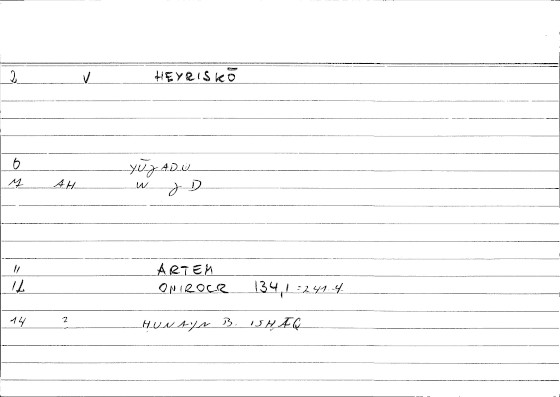 2 V HEYRISKŌ
6 YŪǧADU
M AH W ǧ D
11 ARTEM
12 ONIROCR 134,1 = 241.4
14 ? HUNAYN B. ISḤĀQ